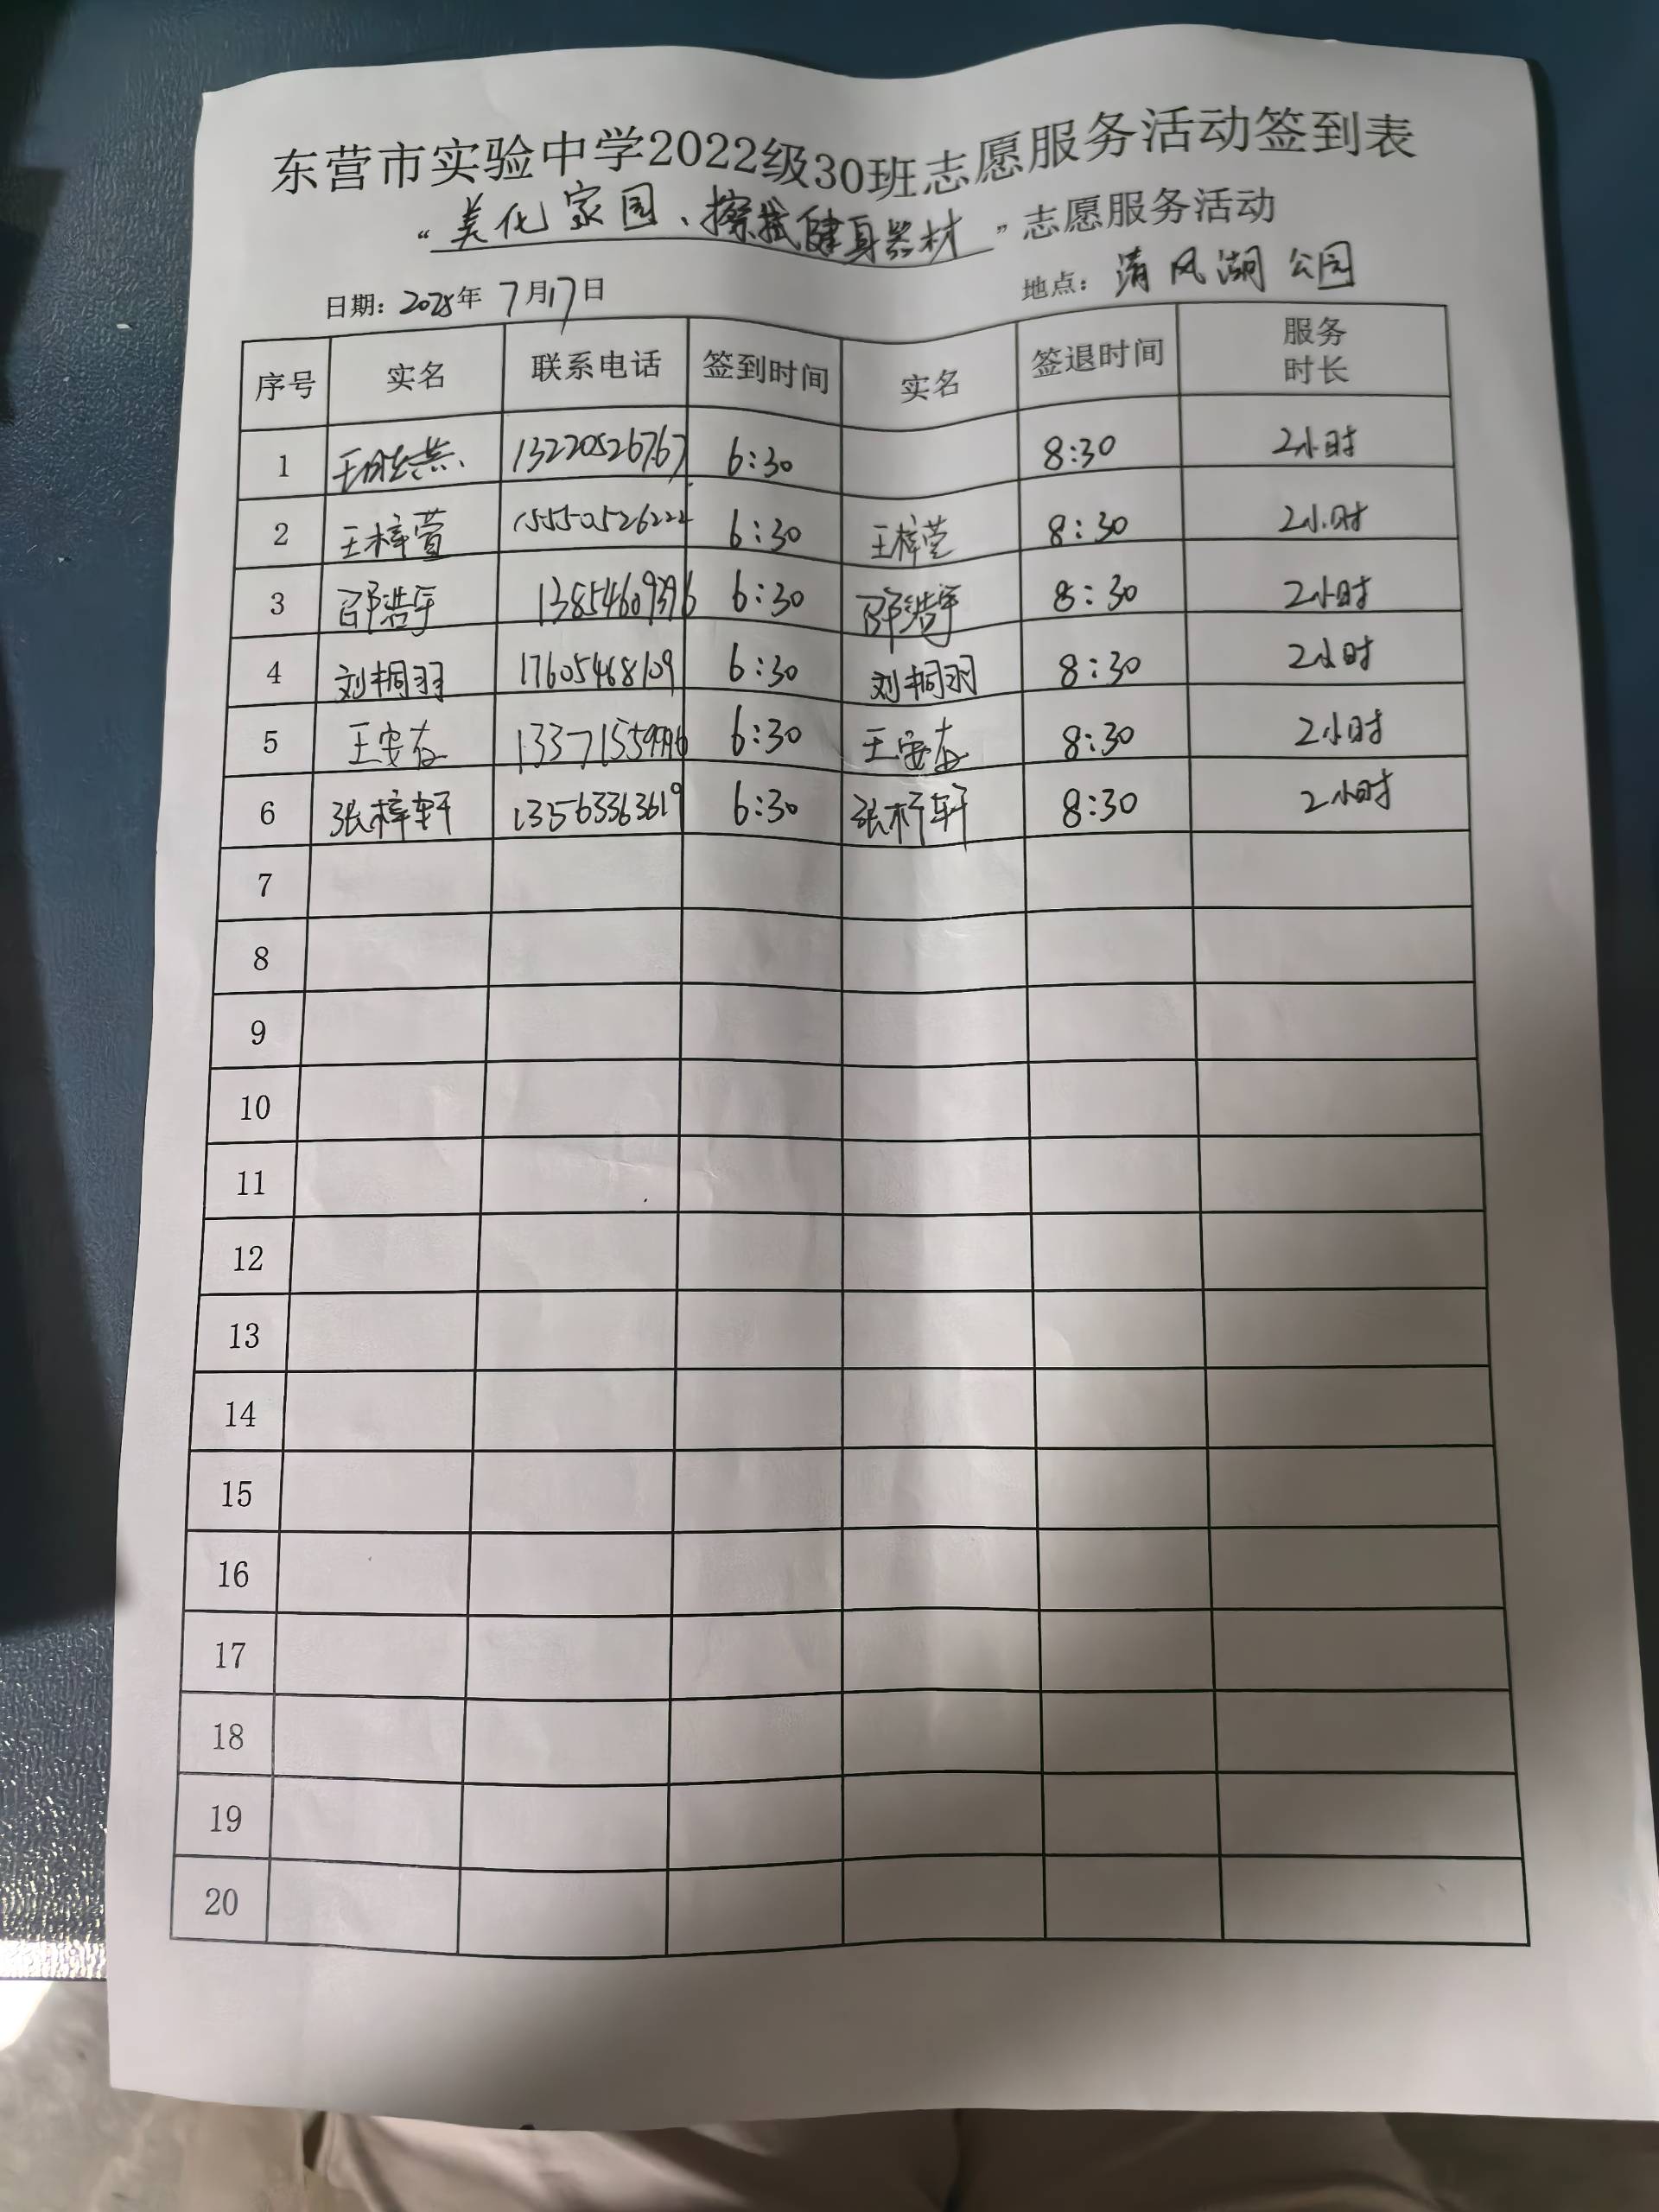 东营市实验中学2022级30班志愿服务活动签到表
“美化家园、擦拭健身器材”志愿服务活动
日期：2025年7月17日 地点：清风湖公园
序号 实名 联系电话 签到时间 实名 签退时间 服务时长
1 13220526767 6:30 8:30 2小时
2 王梓萱 15550526222 6:30 王梓萱 8:30 2小时
3 邵浩宇 13854609396 6:30 邵浩宇 8:30 2小时
4 刘桐羽 17605468109 6:30 刘桐羽 8:30 2小时
5 王安 6:30 王安 8:30 2小时
6 张梓轩 13563363619 6:30 张梓轩 8:30 2小时
7
8
9
10
11
12
13
14
15
16
17
18
19
20